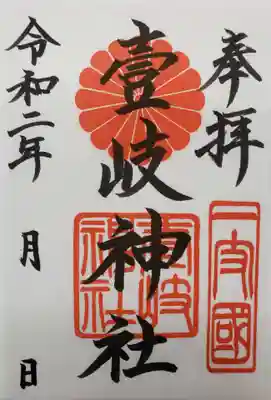 奉拝
一支國
壹岐神社
壹岐神社
令和二年 月 日